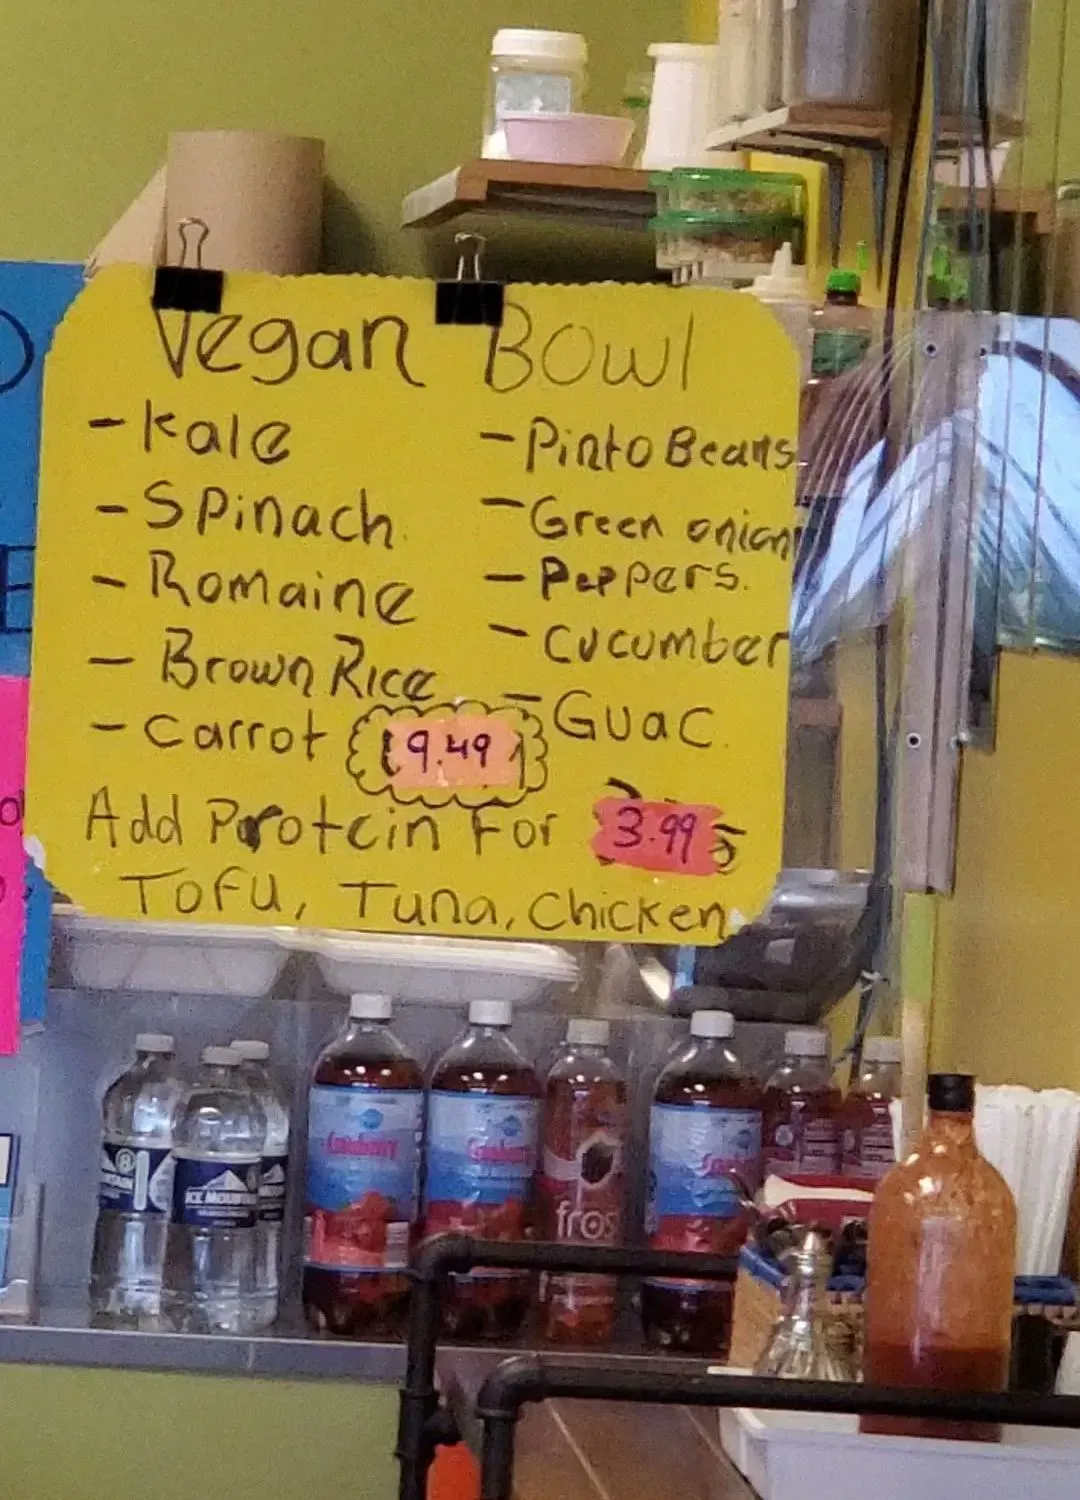 Vegan Bowl
- Kale
- Spinach
- Romaine
- Brown Rice
- Carrot
- Pinto Beans
- Green onion
- Peppers.
- Cucumber
- Guac
9.49
Add Protein For 3.99
Tofu, Tuna, Chicken
ICE MOUNTAIN
Cranberry
Cranberry
fros